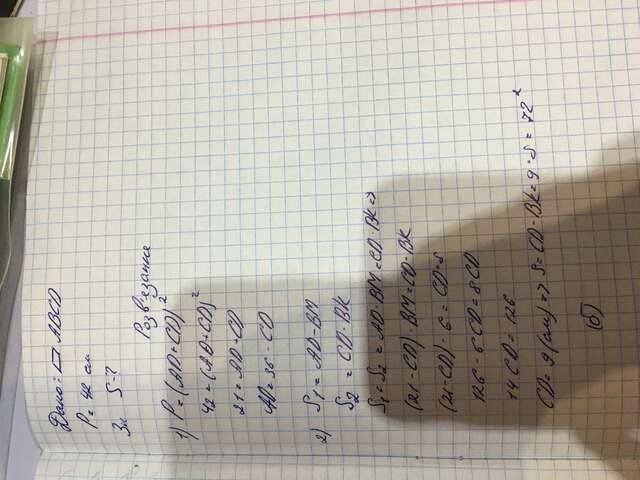 Дано: ▱ ABCD
P = 42 см
Зн. S-?
Розв'язання
1) P = (AD+CD) 2
42 = (AD+CD) 2
21 = AD + CD
AD = 36 - CD
2) S1 = AD · BM
S2 = CD · BK
S1 = S2 = AD · BM = CD · BK =>
(21 - CD) · BM = CD · BK
(21 - CD) · 6 = CD · 8
126 - 6 CD = 8 CD
14 CD = 126
CD = 9 (см) => S = CD · BK = 9 · 8 = 72²
(б)